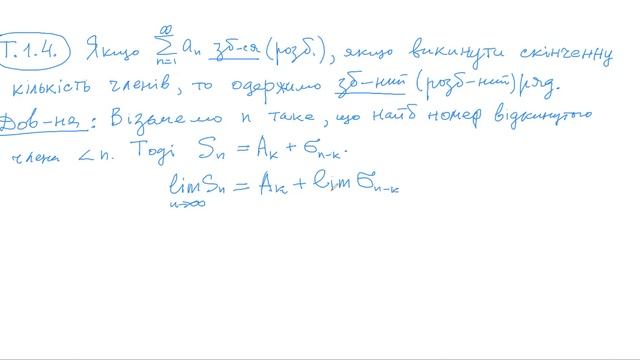 Т.1.4. Якщо ∞∑n=1 aₙ зб-ся (розб.), якщо викинути скінченну
кількість членів, то одержимо зб-ний (розб-ний) ряд.
Дов-ня: Візьмемо n таке, що найб номер відкинутого
члена < n. Тоді Sₙ = Aₖ + σₙ₋ₖ.
lim n→∞ Sₙ = Aₖ + lim σₙ₋ₖ